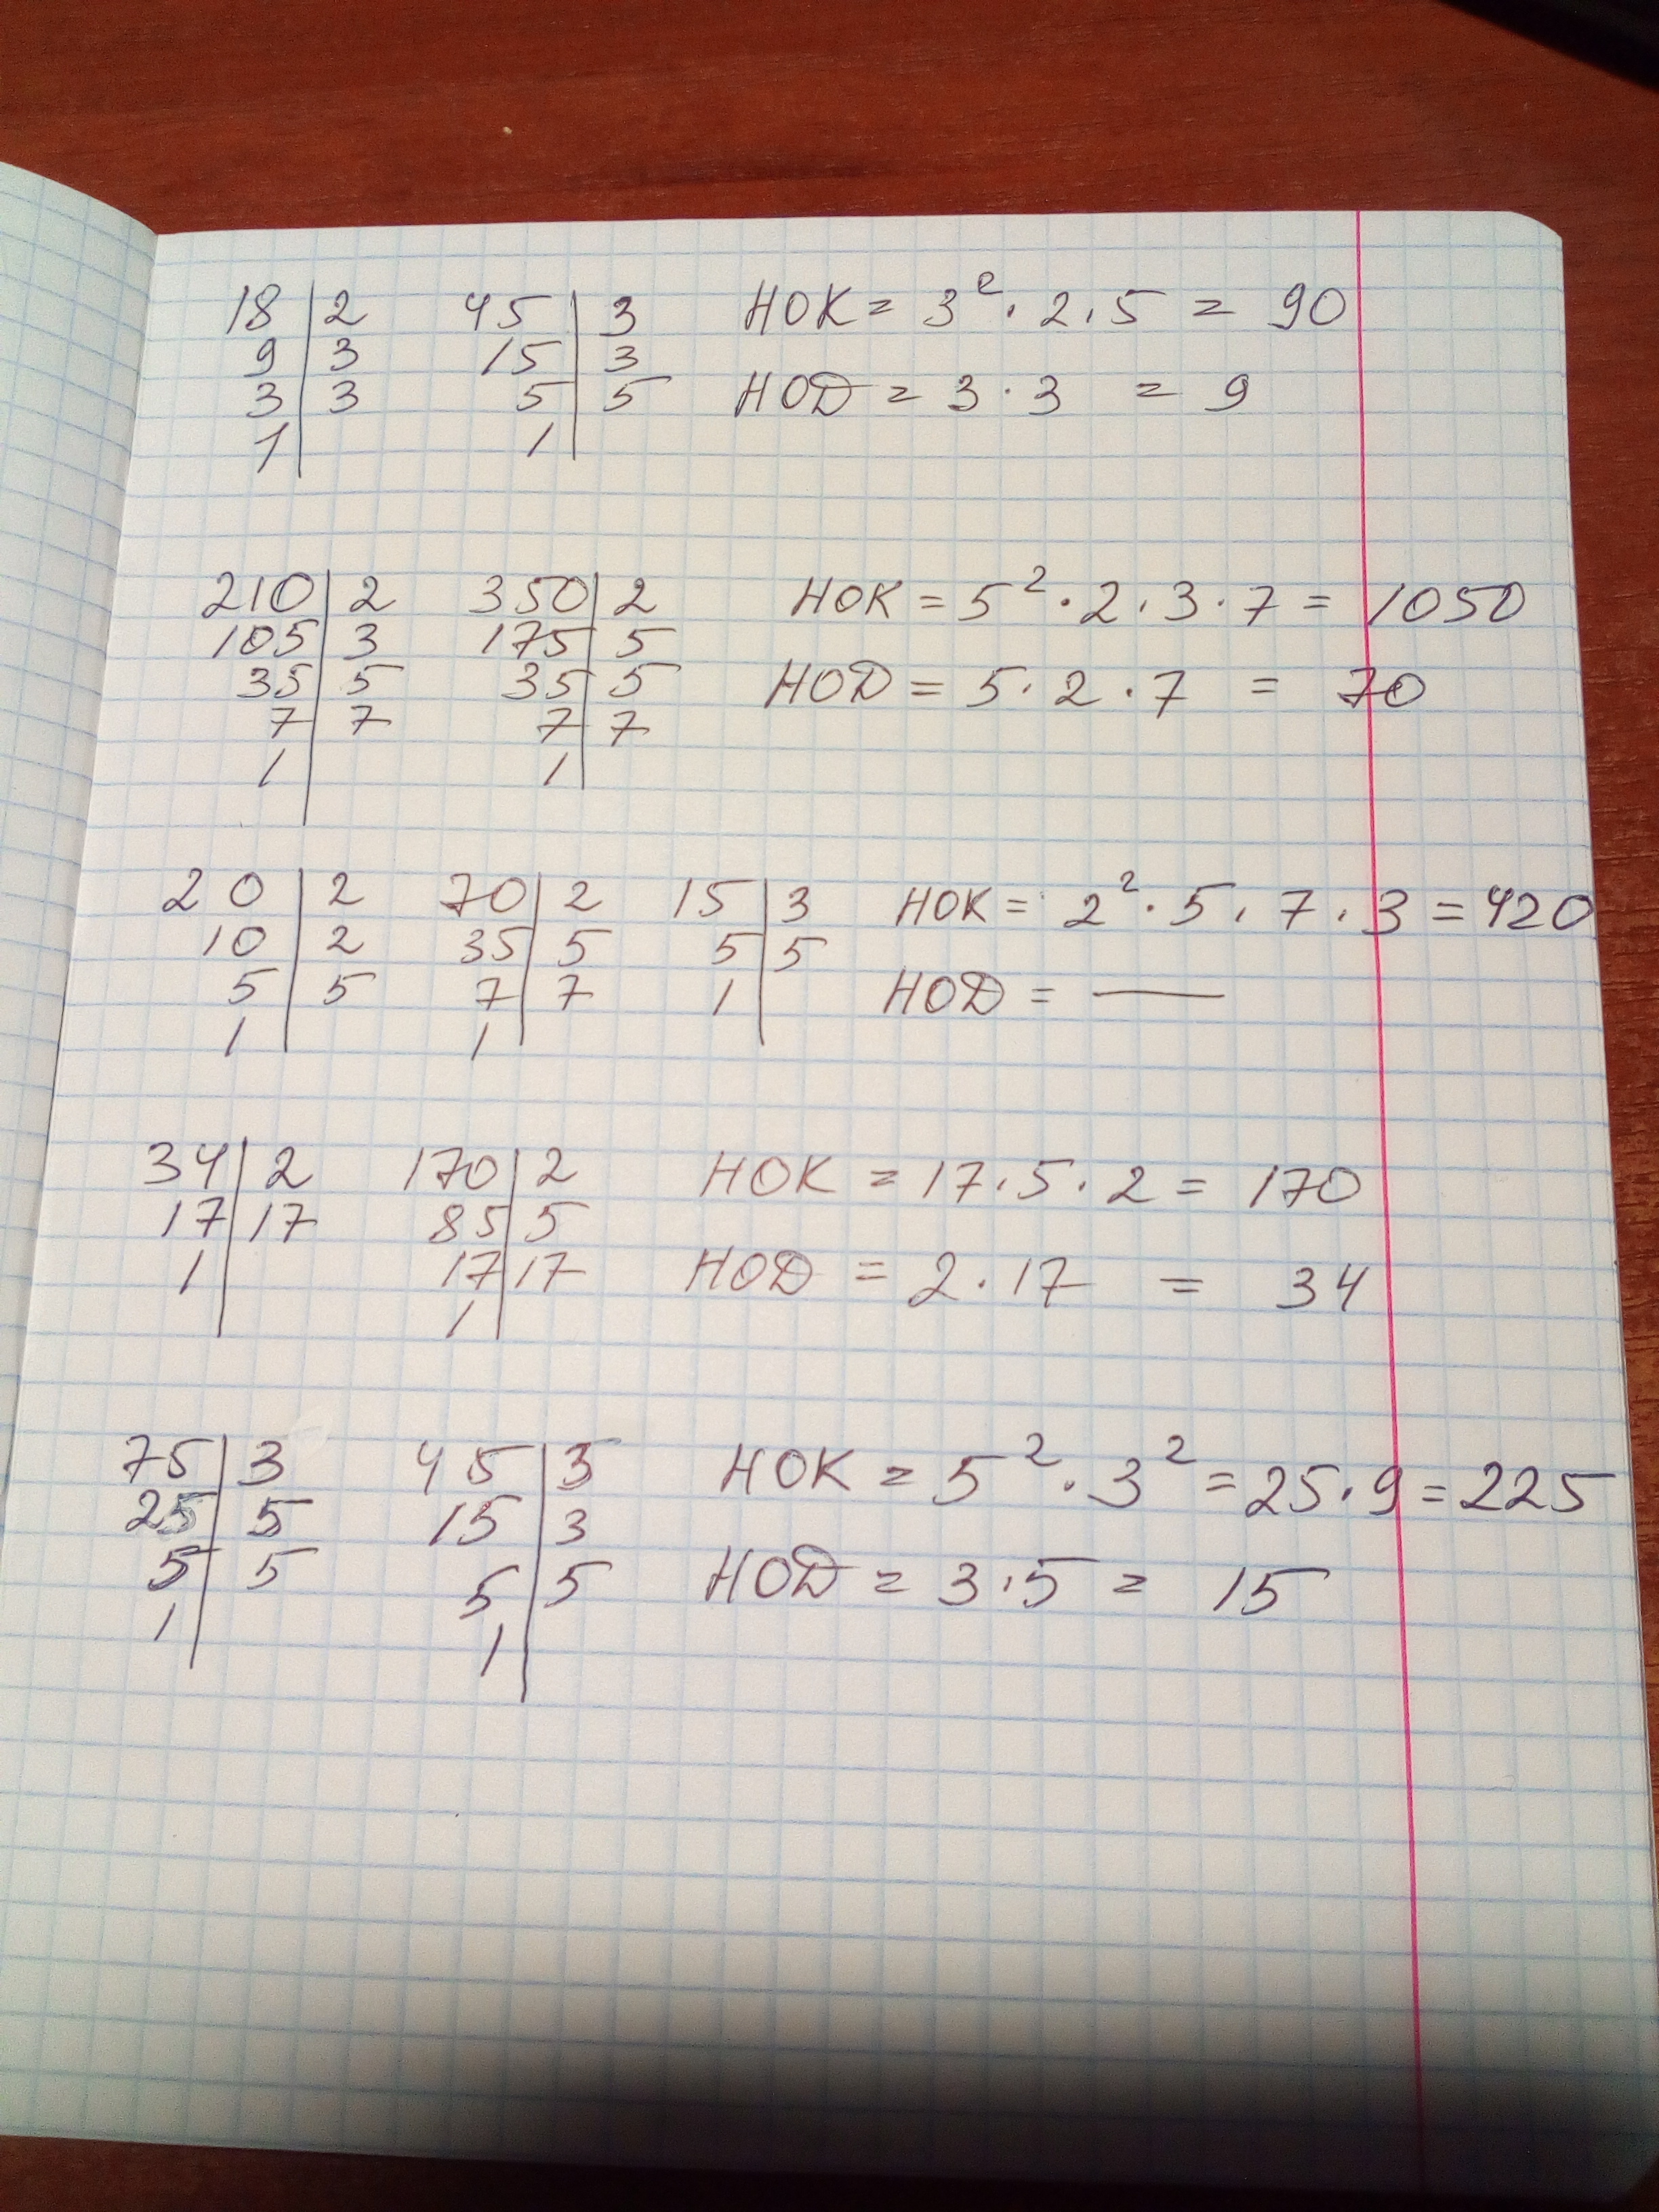 18 | 2 45 | 3 НОК = 3² · 2 · 5 = 90
9 | 3 15 | 3
3 | 3 5 | 5 НОД = 3 · 3 = 9
1 | 1 |
210 | 2 350 | 2 НОК = 5² · 2 · 3 · 7 = 1050
105 | 3 175 | 5
35 | 5 35 | 5 НОД = 5 · 2 · 7 = 70
7 | 7 7 | 7
1 | 1 |
20 | 2 70 | 2 15 | 3 НОК = 2² · 5 · 7 · 3 = 420
10 | 2 35 | 5 5 | 5
5 | 5 7 | 7 1 | НОД = —
1 | 1 |
34 | 2 170 | 2 НОК = 17 · 5 · 2 = 170
17 | 17 85 | 5
1 | 17 | 17 НОД = 2 · 17 = 34
1 |
75 | 3 45 | 3 НОК = 5² · 3² = 25 · 9 = 225
25 | 5 15 | 3
5 | 5 5 | 5 НОД = 3 · 5 = 15
1 | 1 |